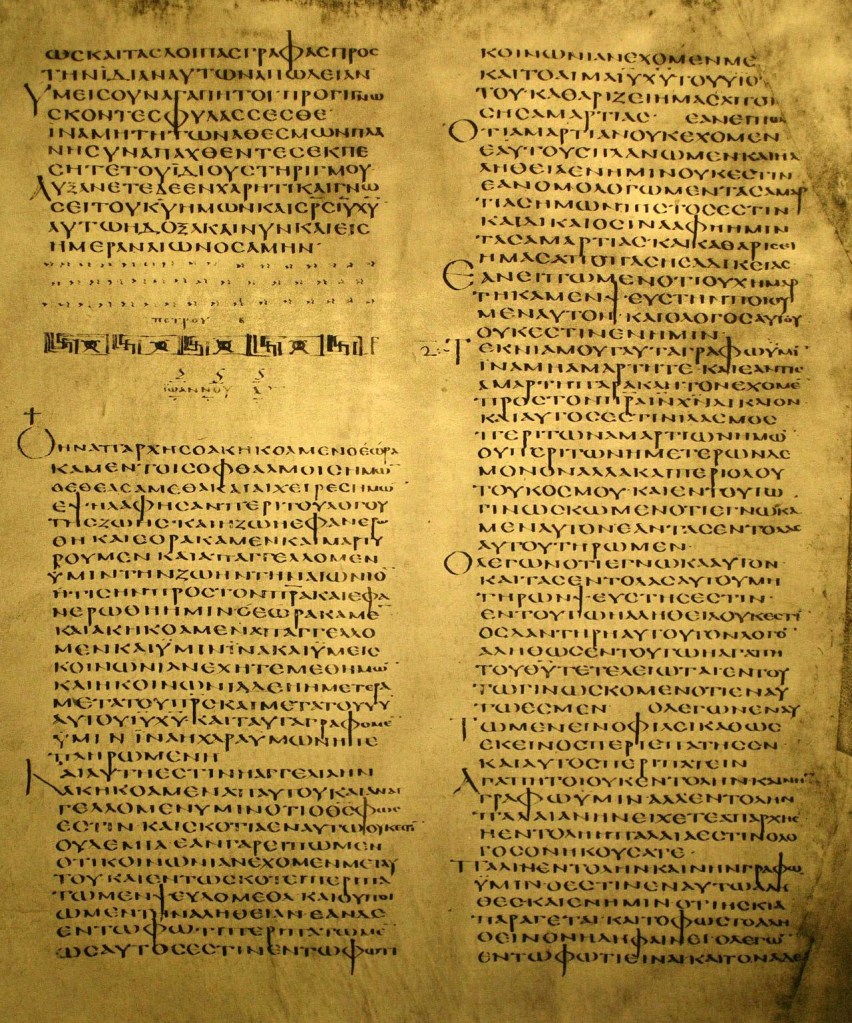 ΩΣΚΑΙΤΑΣΛΟΙΠΑΣΓΡΑΦΑΣΠΡΟΣ
ΤΗΝΙΔΙΑΝΑΥΤΩΝΑΠΩΛΕΙΑΝ
ΥΜΕΙΣΟΥΝΑΓΑΠΗΤΟΙ·ΠΡΟΓΙΝΩ
ΣΚΟΝΤΕΣΦΥΛΑΣΣΕΣΘΕ
ΙΝΑΜΗΤΗΤΩΝΑΘΕΣΜΩΝΠΛΑ
ΝΗΣΥΝΑΠΑΧΘΕΝΤΕΣΕΚΠΕ
ΣΗΤΕΤΟΥΙΔΙΟΥΣΤΗΡΙΓΜΟΥ
ΑΥΞΑΝΕΤΕΔΕΕΝΧΑΡΙΤΙΚΑΙΓΝΩ
ΣΕΙΤΟΥΚΥΗΜΩΝΚΑΙΣΡΣΙΥΧΥ
ΑΥΤΩΗΔΟΞΑΚΑΙΝΥΝΚΑΙΕΙΣ
ΗΜΕΡΑΝΑΙΩΝΟΣΑΜΗΝ·
ΠΕΤΡΟΥ Β
ΙΩΑΝΝΟΥ Α
ΟΗΝΑΠΑΡΧΗΣΟΑΚΗΚΟΑΜΕΝΟΕΩΡΑ
ΚΑΜΕΝΤΟΙΣΟΦΘΑΛΜΟΙΣΗΜΩ
ΟΕΘΕΑΣΑΜΕΘΑΚΑΙΑΙΧΕΙΡΕΣΗΜΩ
ΕΨΗΛΑΦΗΣΑΝΠΕΡΙΤΟΥΛΟΓΟΥ
ΤΗΣΖΩΗΣ·ΚΑΙΗΖΩΗΕΦΑΝΕΡΩ
ΘΗΚΑΙΕΟΡΑΚΑΜΕΝΚΑΙΜΑΡΤΥ
ΡΟΥΜΕΝΚΑΙΑΠΑΓΓΕΛΛΟΜΕΝ
ΥΜΙΝΤΗΝΖΩΗΝΤΗΝΑΙΩΝΙΟ
ΗΤΙΣΗΝΠΡΟΣΤΟΝΠΡΑΚΑΙΕΦΑ
ΝΕΡΩΘΗΗΜΙΝΟΕΩΡΑΚΑΜΕ
ΚΑΙΑΚΗΚΟΑΜΕΝΑΠΑΓΓΕΛΛΟ
ΜΕΝΚΑΙΥΜΙΝΙΝΑΚΑΙΥΜΕΙΣ
ΚΟΙΝΩΝΙΑΝΕΧΗΤΕΜΕΘΗΜΩ
ΚΑΙΗΚΟΙΝΩΝΙΑΔΕΗΗΜΕΤΕΡΑ
ΜΕΤΑΤΟΥΠΡΣΚΑΙΜΕΤΑΤΟΥΥΥ
ΑΥΤΟΥΙΥΧΥ·ΚΑΙΤΑΥΤΑΓΡΑΦΟΜΕ
ΥΜΙΝΙΝΑΗΧΑΡΑΥΜΩΝΗΠΕ
ΠΛΗΡΩΜΕΝΗ
ΚΑΙΑΥΤΗΕΣΤΙΝΗΑΓΓΕΛΙΑΗΝ
ΑΚΗΚΟΑΜΕΝΑΠΑΥΤΟΥΚΑΙΑΝΑΓ
ΓΕΛΛΟΜΕΝΥΜΙΝΟΤΙΟΘΣΦΩΣ
ΕΣΤΙΝΚΑΙΣΚΟΤΙΑΕΝΑΥΤΩΟΥΚΕΣΤΙ
ΟΥΔΕΜΙΑΕΑΝΓΑΡΕΙΠΩΜΕΝ
ΟΤΙΚΟΙΝΩΝΙΑΝΕΧΟΜΕΝΜΕΤΑΥ
ΤΟΥΚΑΙΕΝΤΩΣΚΟΤΕΙΠΕΡΙΠΑ
ΤΩΜΕΝΨΕΥΔΟΜΕΘΑΚΑΙΟΥΠΟΙ
ΩΜΕΝΤΗΝΑΛΗΘΕΙΑΝΕΑΝΔΕ
ΕΝΤΩΦΩΤΙΠΕΡΙΠΑΤΩΜΕ
ΩΣΑΥΤΟΣΕΣΤΙΝΕΝΤΩΦΩΤΙ
ΚΟΙΝΩΝΙΑΝΕΧΟΜΕΝΜΕ
ΚΑΙΤΟΑΙΜΑΙΥΧΥΤΟΥΥΙΟΥ
ΤΟΥΚΑΘΑΡΙΖΕΙΗΜΑΣΑΠΟΠΑ
ΣΗΣΑΜΑΡΤΙΑΣ· ΕΑΝΕΙΠΩ
ΟΤΙΑΜΑΡΤΙΑΝΟΥΚΕΧΟΜΕΝ
ΕΑΥΤΟΥΣΠΛΑΝΩΜΕΝΚΑΙΗΑ
ΛΗΘΕΙΑΕΝΗΜΙΝΟΥΚΕΣΤΙΝ
ΕΑΝΟΜΟΛΟΓΩΜΕΝΤΑΣΑΜΑΡ
ΤΙΑΣΗΜΩΝΠΙΣΤΟΣΕΣΤΙΝ
ΚΑΙΔΙΚΑΙΟΣΙΝΑΑΦΗΗΜΙΝ
ΤΑΣΑΜΑΡΤΙΑΣ·ΚΑΙΚΑΘΑΡΙΣΕΙ
ΗΜΑΣΑΠΟΠΑΣΗΣΑΔΙΚΕΙΑΣ
ΕΑΝΕΙΠΩΜΕΝΟΤΙΟΥΧΗΜΑΡ
ΤΗΚΑΜΕΝΨΕΥΣΤΗΝΠΟΙΟΥ
ΜΕΝΑΥΤΟΝ·ΚΑΙΟΛΟΓΟΣΑΥΤΟΥ
ΟΥΚΕΣΤΙΝΕΝΗΜΙΝ·
ΤΕΚΝΙΑΜΟΥΤΑΥΤΑΓΡΑΦΩΥΜΙ
ΙΝΑΜΗΑΜΑΡΤΗΤΕ·ΚΑΙΕΑΝΤΙΣ
ΑΜΑΡΤΗΠΑΡΑΚΛΗΤΟΝΕΧΟΜΕ
ΠΡΟΣΤΟΝΠΡΑΙΝΧΝΔΙΚΑΙΟΝ
ΚΑΙΑΥΤΟΣΕΣΤΙΝΙΛΑΣΜΟΣ
ΠΕΡΙΤΩΝΑΜΑΡΤΙΩΝΗΜΩ
ΟΥΠΕΡΙΤΩΝΗΜΕΤΕΡΩΝΔΕ
ΜΟΝΟΝΑΛΛΑΚΑΙΠΕΡΙΟΛΟΥ
ΤΟΥΚΟΣΜΟΥ·ΚΑΙΕΝΤΟΥΤΩ
ΓΙΝΩΣΚΩΜΕΝΟΤΙΕΓΝΩΚΑ
ΜΕΝΑΥΤΟΝΕΑΝΤΑΣΕΝΤΟΛΑΣ
ΑΥΤΟΥΤΗΡΩΜΕΝ·
ΟΛΕΓΩΝΟΤΙΕΓΝΩΚΑΑΥΤΟΝ
ΚΑΙΤΑΣΕΝΤΟΛΑΣΑΥΤΟΥΜΗ
ΤΗΡΩΝΨΕΥΣΤΗΣΕΣΤΙΝ·
ΕΝΤΟΥΤΩΗΑΛΗΘΕΙΑΟΥΚΕΣΤΙ
ΟΣΔΑΝΤΗΡΗΑΥΤΟΥΤΟΝΛΟΓΟ
ΑΛΗΘΩΣΕΝΤΟΥΤΩΗΑΓΑΠΗ
ΤΟΥΘΥΤΕΤΕΛΕΙΩΤΑΙΕΝΤΟΥ
ΤΩΓΙΝΩΣΚΟΜΕΝΟΤΙΕΝΑΥ
ΤΩΕΣΜΕΝ ΟΛΕΓΩΝΕΝΑΥ
ΤΩΜΕΝΕΙΝΟΦΙΛΕΙΚΑΘΩΣ
ΕΚΕΙΝΟΣΠΕΡΙΕΠΑΤΗΣΕΝ
ΚΑΙΑΥΤΟΣΠΕΡΙΠΑΤΕΙΝ
ΑΓΑΠΗΤΟΙΟΥΚΕΝΤΟΛΗΝΚΑΙΝΗ
ΓΡΑΦΩΥΜΙΝΑΛΛΕΝΤΟΛΗΝ
ΠΑΛΑΙΑΝΗΝΕΙΧΕΤΕΑΠΑΡΧΗΣ
ΗΕΝΤΟΛΗΗΠΑΛΑΙΑΕΣΤΙΝΟΛΟ
ΓΟΣΟΝΗΚΟΥΣΑΤΕ·
ΠΑΛΙΝΕΝΤΟΛΗΝΚΑΙΝΗΝΓΡΑΦΩ
ΥΜΙΝΟΕΣΤΙΝΕΝΑΥΤΩΑΛΗ
ΘΕΣΚΑΙΕΝΗΜΙΝΟΤΙΗΣΚΙΑ
ΠΑΡΑΓΕΤΑΙ·ΚΑΙΤΟΦΩΣΤΟΑΛΗ
ΘΙΝΟΝΗΔΗΦΑΙΝΕΙΟΛΕΓΩ
ΕΝΤΩΦΩΤΙΕΙΝΑΙΚΑΙΤΟΝΑΔΕ